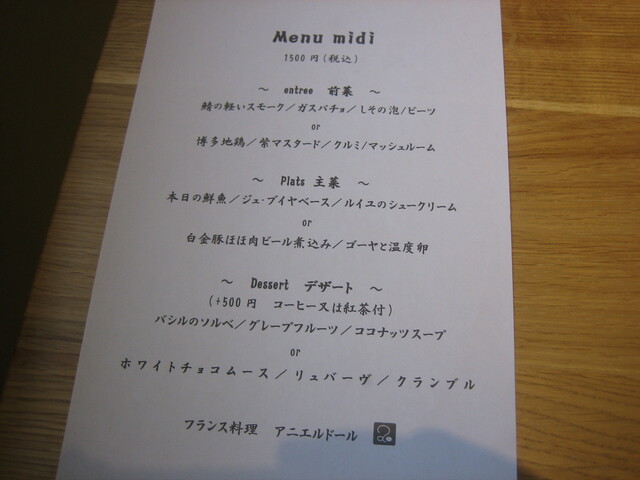 Menu midi
1500 円(税込)
～ entree 前菜 ～
鰆の軽いスモーク／ガスパチョ／しその泡/ビーツ
or
博多地鶏／紫マスタード／クルミ/マッシュルーム
～ Plats 主菜 ～
本日の鮮魚／ジュ・ブイヤベース／ルイユのシュークリーム
or
白金豚ほほ肉ビール煮込み／ゴーヤと温度卵
～ Dessert デザート ～
(+500 円 コーヒー又は紅茶付)
バジルのソルベ／グレープフルーツ／ココナッツスープ
or
ホワイトチョコムース／リュバーヴ／クランブル
フランス料理 アニエルドール